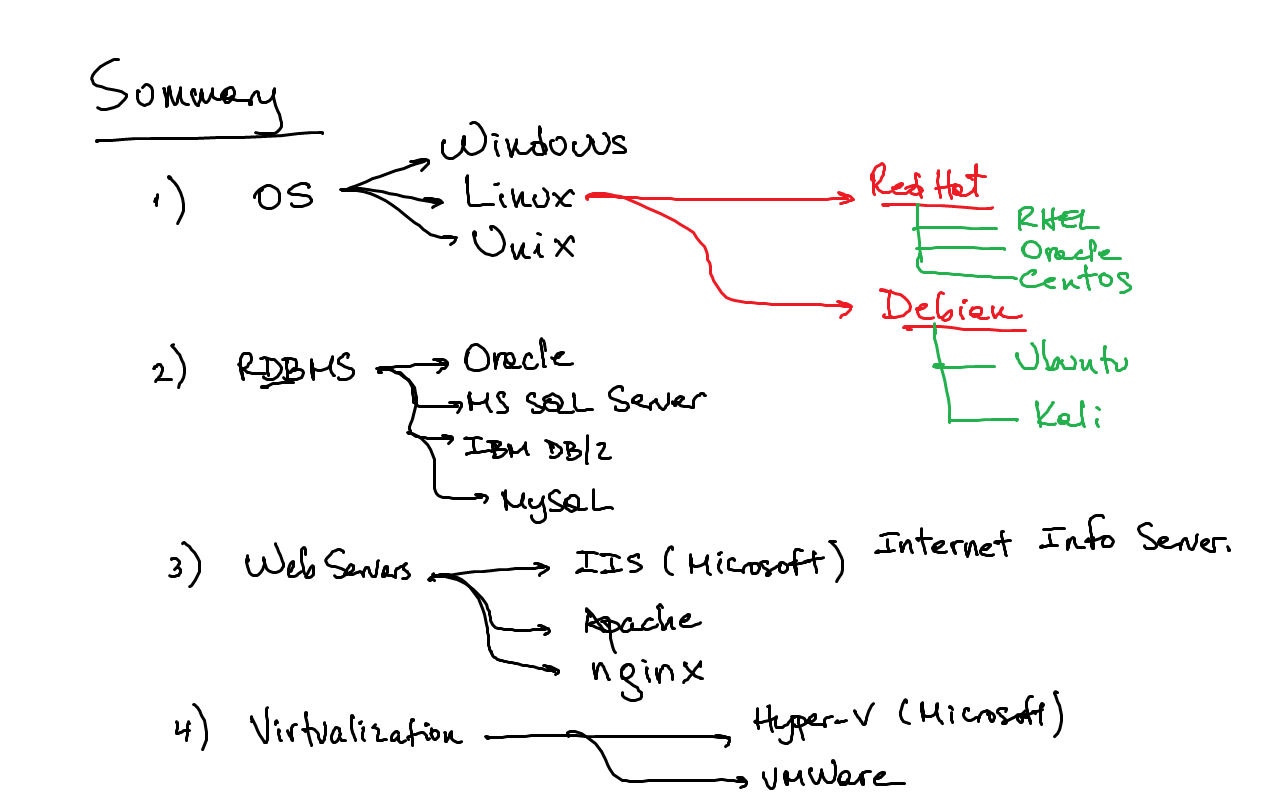 Summary
Windows
1) OS Linux Red Hat
Unix RHEL
Oracle
Centos
Debian
2) RDBMS Oracle Ubuntu
MS SQL Server
Kali
IBM DB/2
MySQL
3) Web Servers IIS (Microsoft) Internet Info Server.
Apache
nginx
4) Virtualization Hyper-V (Microsoft)
VMWare